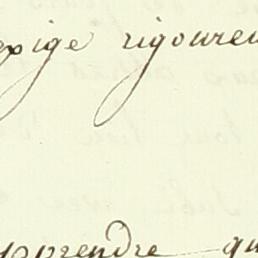 exige rigoureu
pprendre qu